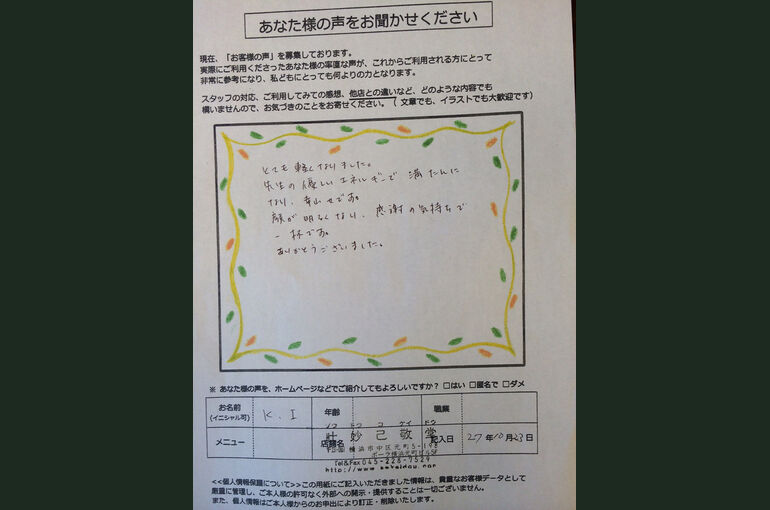 あなた様の声をお聞かせください
現在、「お客様の声」を募集しております。
実際にご利用くださったあなた様の率直な声が、これからご利用される方にとって
非常に参考になり、私どもにとっても何よりの力となります。
スタッフの対応、ご利用してみての感想、他店との違いなど、どのような内容でも
構いませんので、お気づきのことをお寄せください。(文章でも、イラストでも大歓迎です)
とても軽くなりました。
先生の優しいエネルギーで満たんに
なり、幸せです。
顔が明るくなり、感謝の気持ちで
一杯です。
ありがとうございました。
※ あなた様の声を、ホームページなどでご紹介してもよろしいですか？ □はい □匿名で □ダメ
お名前 K.I 年齢 職業
(イニシャル可)
メニュー 店舗名 妙己敬堂 記入日 27年10月23日
横浜市中区元町5-198
Tel&Fax 045-228-7529
<<個人情報保護について>>この用紙にご記入いただきました情報は、貴重なお客様データとして
厳重に管理し、ご本人様の許可なく外部への開示・提供することは一切ございません。
また、個人情報はご本人様からのお申出により訂正・削除いたします。